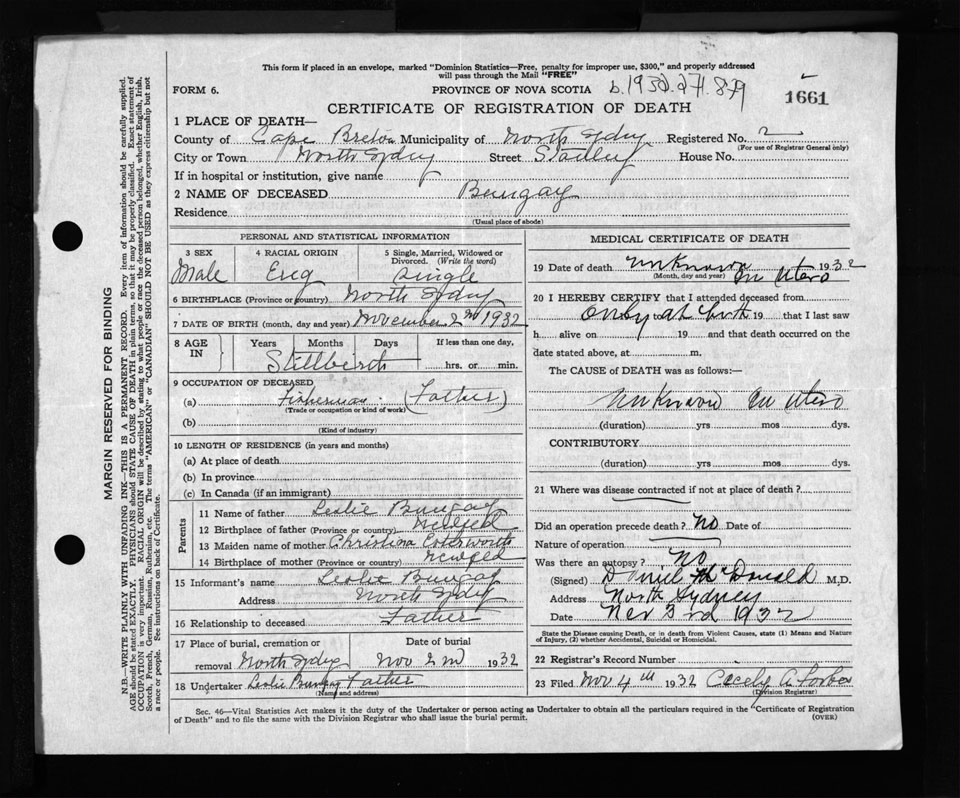 This form if placed in an envelope, marked "Dominion Statistics—Free, penalty for improper use, $300," and properly addressed
will pass through the Mail "FREE"
FORM 6.
PROVINCE OF NOVA SCOTIA
1661
CERTIFICATE OF REGISTRATION OF DEATH
1 PLACE OF DEATH—
County of Cape Breton Municipality of North Sydney Registered No. 2
(For use of Registrar General only)
City or Town North Sydney Street Stanley House No.
If in hospital or institution, give name
2 NAME OF DECEASED Bungay
Residence
(Usual place of abode)
PERSONAL AND STATISTICAL INFORMATION
3 SEX Male
4 RACIAL ORIGIN Eng
5 Single, Married, Widowed or Divorced. (Write the word) Single
6 BIRTHPLACE (Province or country) North Sydney
7 DATE OF BIRTH (month, day and year) November 2nd 1932
8 AGE IN Years Months Days If less than one day, hrs. or min.
Stillbirth
9 OCCUPATION OF DECEASED
(a) Fisherman (Father)
(Trade or occupation or kind of work)
(b)
(Kind of industry)
10 LENGTH OF RESIDENCE (in years and months)
(a) At place of death
(b) In province
(c) In Canada (if an immigrant)
Parents
11 Name of father Leslie Bungay
12 Birthplace of father (Province or country) Newfld
13 Maiden name of mother Christina
14 Birthplace of mother (Province or country) Newfld
15 Informant's name Leslie Bungay
Address North Sydney
16 Relationship to deceased Father
17 Place of burial, cremation or removal North Sydney
Date of burial Nov 2nd 1932
18 Undertaker Leslie Bungay Father
(Name and address)
MEDICAL CERTIFICATE OF DEATH
19 Date of death unknown in utero 1932
(Month, day and year)
20 I HEREBY CERTIFY that I attended deceased from
Only at birth 19 that I last saw
h alive on 19 and that death occurred on
date stated above, at m.
The CAUSE of DEATH was as follows:—
Unknown in utero
(duration) yrs mos dys.
CONTRIBUTORY
(duration) yrs mos dys.
21 Where was disease contracted if not at place of death?
Did an operation precede death? No Date of
Nature of operation
Was there an autopsy? No
(Signed) Daniel McDonald M.D.
Address North Sydney
Date Nov 3rd 1932
State the Disease causing Death, or in death from Violent Causes, state (1) Means and Nature
of Injury, (2) whether Accidental, Suicidal or Homicidal.
22 Registrar's Record Number
23 Filed Nov 4th 1932 Cecely A. Forbes
(Division Registrar)
Sec. 46—Vital Statistics Act makes it the duty of the Undertaker or person acting as Undertaker to obtain all the particulars required in the "Certificate of Registration
of Death" and to file the same with the Division Registrar who shall issue the burial permit.
(OVER)
MARGIN RESERVED FOR BINDING
N.B.—WRITE PLAINLY WITH UNFADING INK—THIS IS A PERMANENT RECORD. Every item of information should be carefully supplied.
AGE should be stated EXACTLY. PHYSICIANS should STATE CAUSE OF DEATH in plain terms, so that it may be properly classified. Exact statement of
OCCUPATION is very important. RACIAL ORIGIN will be described by stating to what people or race the deceased person belonged, whether English, Irish,
Scotch, French, German, Russian, Ruthenian, etc. The terms "AMERICAN" or "CANADIAN" SHOULD NOT BE USED as they express citizenship but not
a race or people. See instructions on back of Certificate.